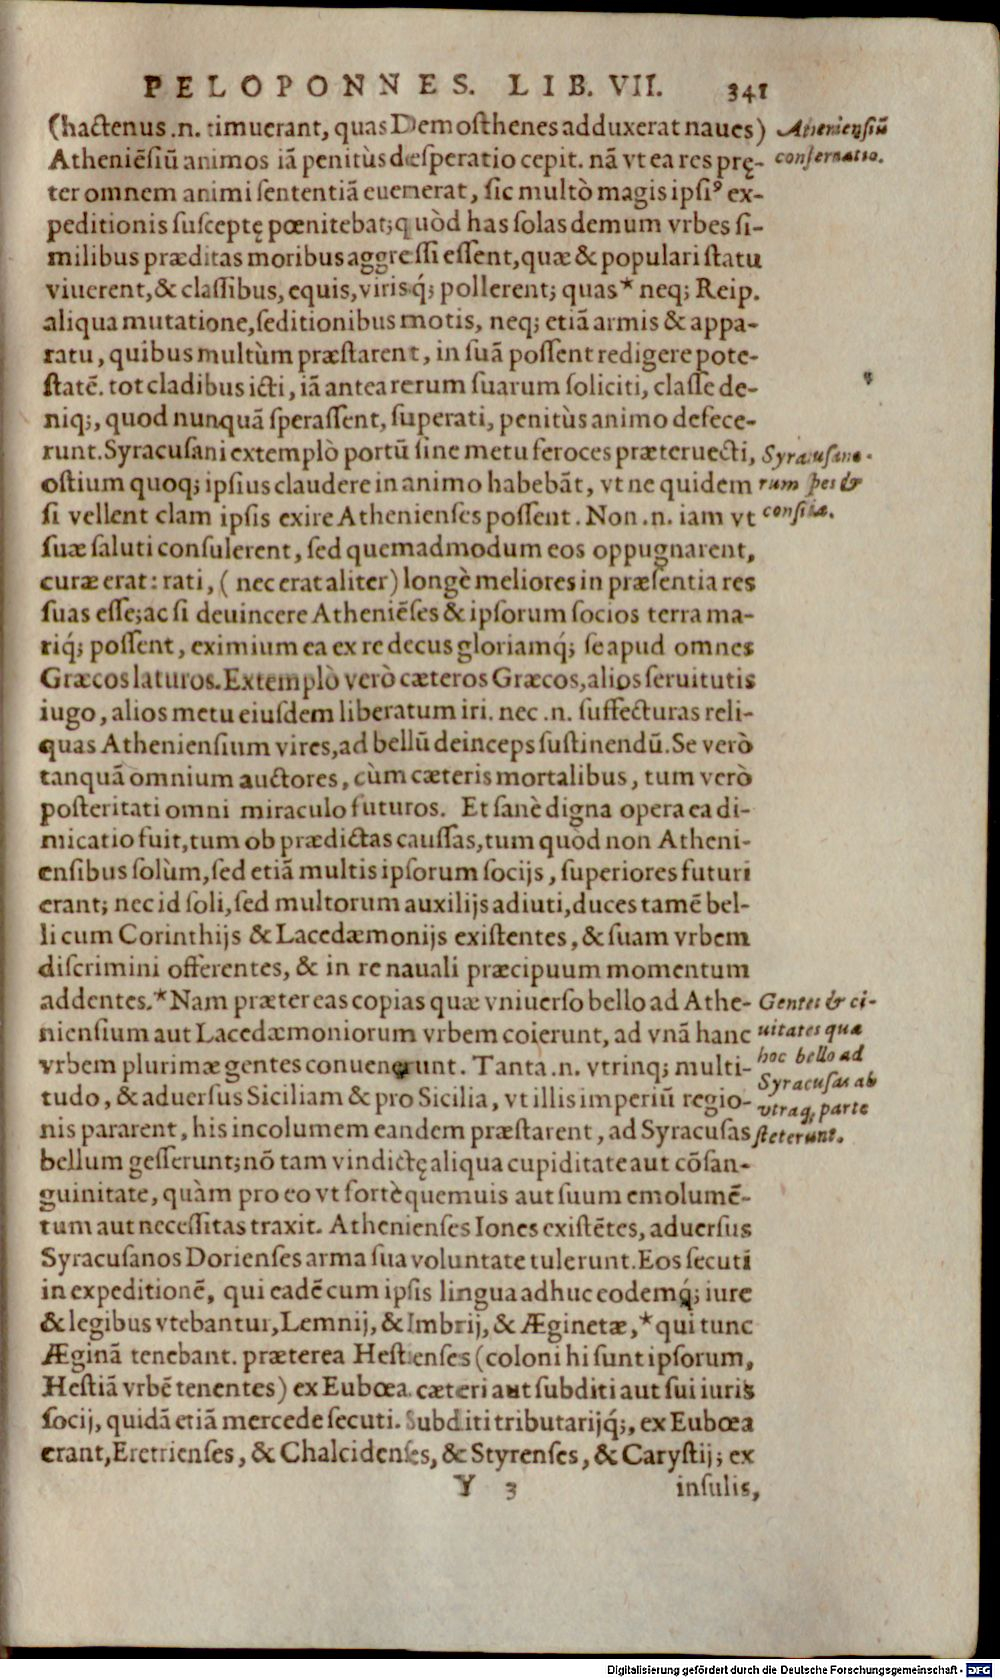 PELOPONNES. LIB. VII. 341
(hactenus .n. timuerant, quas Demosthenes adduxerat naues)
Atheniẽsiũ animos iã penitùs desperatio cepit. nã vt ea res prę-
ter omnem animi sententiã euenerat, sic multò magis ipsiꝰ ex-
peditionis susceptę pœnitebat; quòd has solas demum vrbes si-
milibus præditas moribus aggressi essent, quæ & populari statu
viuerent, & classibus, equis, virisq́; pollerent; quas* neq; Reip.
aliqua mutatione, seditionibus motis, neq; etiã armis & appa-
ratu, quibus multùm præstarent, in suã possent redigere pote-
statẽ. tot cladibus icti, iã antea rerum suarum soliciti, classe de-
niq;, quod nunquã sperassent, superati, penitùs animo defece-
runt. Syracusani extemplò portũ sine metu feroces præteruecti,
ostium quoq; ipsius claudere in animo habebãt, vt ne quidem
si vellent clam ipsis exire Athenienses possent. Non .n. iam vt
suæ saluti consulerent, sed quemadmodum eos oppugnarent,
curæ erat: rati, (nec erat aliter) longè meliores in præsentia res
suas esse; ac si deuincere Atheniẽses & ipsorum socios terra ma-
riq́; possent, eximium ea ex re decus gloriamq́; se apud omnes
Græcos laturos. Extemplò verò cæteros Græcos, alios seruitutis
iugo, alios metu eiusdem liberatum iri. nec .n. suffecturas reli-
quas Atheniensium vires, ad bellũ deinceps sustinendũ. Se verò
tanquã omnium auctores, cùm cæteris mortalibus, tum verò
posteritati omni miraculo futuros. Et sanè digna opera ea di-
micatio fuit, tum ob prædictas caussas, tum quòd non Atheni-
ensibus solùm, sed etiã multis ipsorum socijs, superiores futuri
erant; nec id soli, sed multorum auxilijs adiuti, duces tamẽ bel-
li cum Corinthijs & Lacedæmonijs existentes, & suam vrbem
discrimini offerentes, & in re nauali præcipuum momentum
addentes.* Nam præter eas copias quæ vniuerso bello ad Athe-
niensium aut Lacedæmoniorum vrbem coierunt, ad vnã hanc
vrbem plurimæ gentes conuenerunt. Tanta .n. vtrinq; multi-
tudo, & aduersus Siciliam & pro Sicilia, vt illis imperiũ regio-
nis pararent, his incolumem eandem præstarent, ad Syracusas
bellum gesserunt; nõ tam vindictę aliqua cupiditate aut cõsan-
guinitate, quàm pro eo vt fortè quemuis aut suum emolumẽ-
tum aut necessitas traxit. Athenienses Iones existẽtes, aduersus
Syracusanos Dorienses arma sua voluntate tulerunt. Eos secuti
in expeditionẽ, qui eadẽ cum ipsis lingua adhuc eodemq́; iure
& legibus vtebantur, Lemnij, & Imbrij, & Æginetæ,* qui tunc
Æginã tenebant. præterea Hestienses (coloni hi sunt ipsorum,
Hestiã vrbẽ tenentes) ex Eubœa. cæteri aut subditi aut sui iuris
socij, quidã etiã mercede secuti. Subditi tributarijq́;, ex Eubœa
erant, Eretrienses, & Chalcidenses, & Styrenses, & Carystij; ex
Y 3 insulis,
Atheniensiũ
consernatio.
Syracusano-
rum spes &
consilia.
Gentes & ci-
uitates quæ
hoc bello ad
Syracusas ab
vtraq; parte
steterunt.
Digitalisierung gefördert durch die Deutsche Forschungsgemeinschaft - DFG